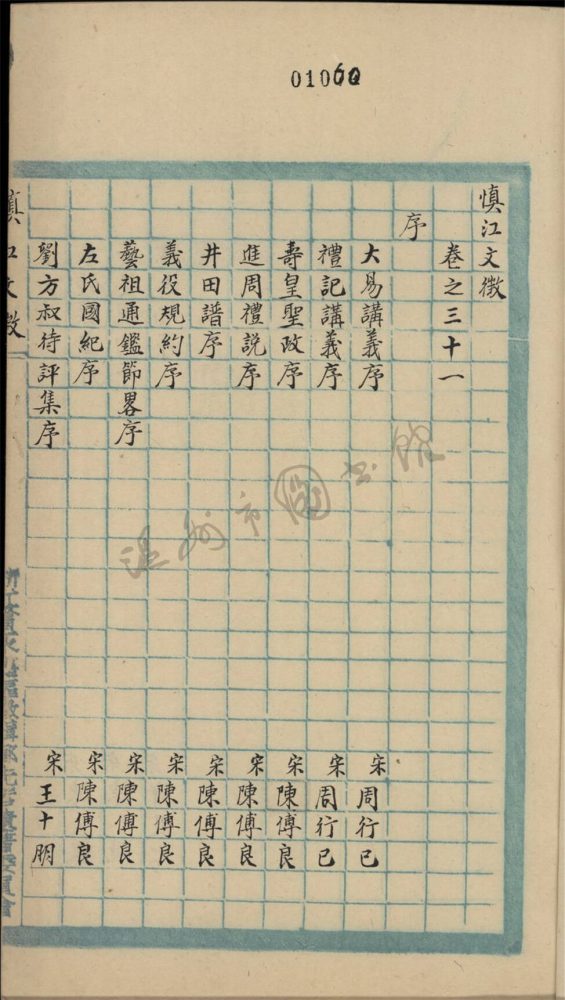 01060
慎江文徵
卷之三十一
序
大易講義序 宋 周行己
禮記講義序 宋 周行己
壽皇聖政序 宋 陳傅良
進周禮説序 宋 陳傅良
井田譜序 宋 陳傅良
義役規約序 宋 陳傅良
藝祖通鑑節畧序 宋 陳傅良
左氏國紀序 宋 陳傅良
劉方叔待評集序 宋 王十朋
慎江文徵
温州市圖書館